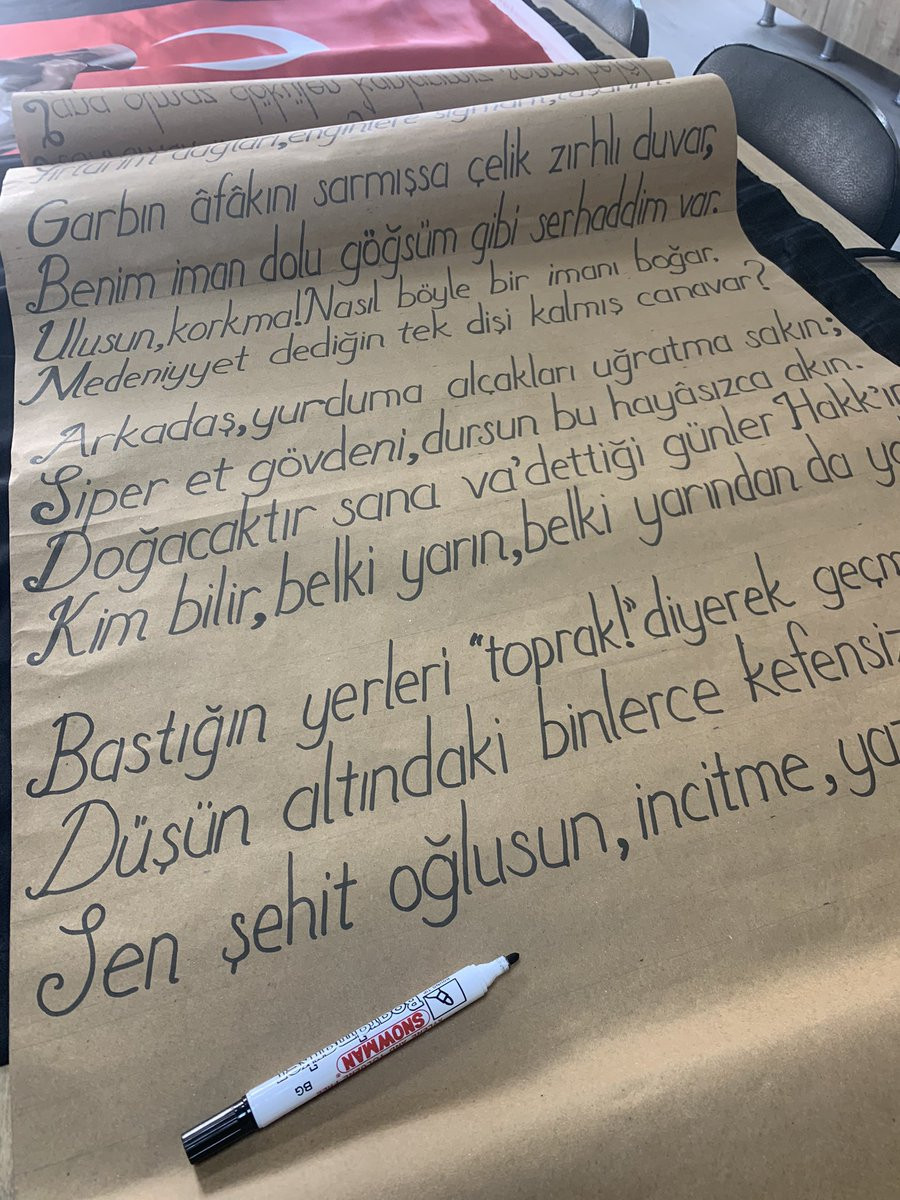 Sana olmaz dökülen kanlarımız sonra helâl
Yırtarım dağları, enginlere sığmam, taşarım.
Garbın âfâkını sarmışsa çelik zırhlı duvar,
Benim iman dolu göğsüm gibi serhaddim var.
Ulusun, korkma! Nasıl böyle bir imanı boğar.
Medeniyyet dediğin tek dişi kalmış canavar?
Arkadaş, yurduma alçakları uğratma sakın;
Siper et gövdeni, dursun bu hayâsızca akın.
Doğacaktır sana va'dettiği günler Hakk'ın
Kim bilir, belki yarın, belki yarından da ya
Bastığın yerleri "toprak!" diyerek geçm
Düşün altındaki binlerce kefensiz
Sen şehit oğlusun, incitme, yaz
SNOWMAN
BG